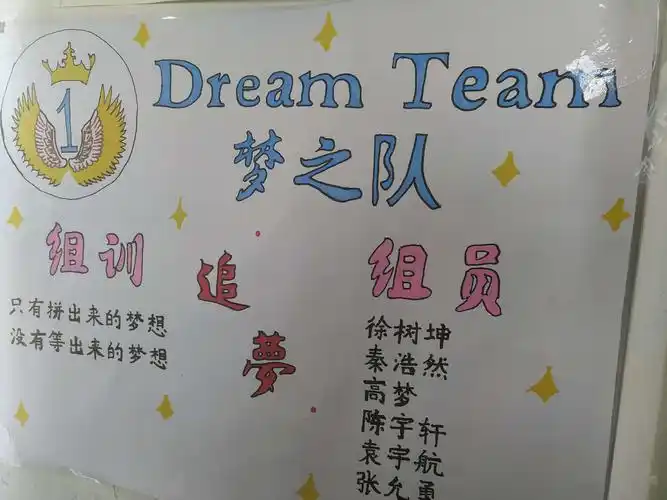 1
Dream Team
梦之队
组训
只有拼出来的梦想
没有等出来的梦想
追
夢
组员
徐树坤
秦浩然
高梦
陈宇轩
袁宇航
张允勇